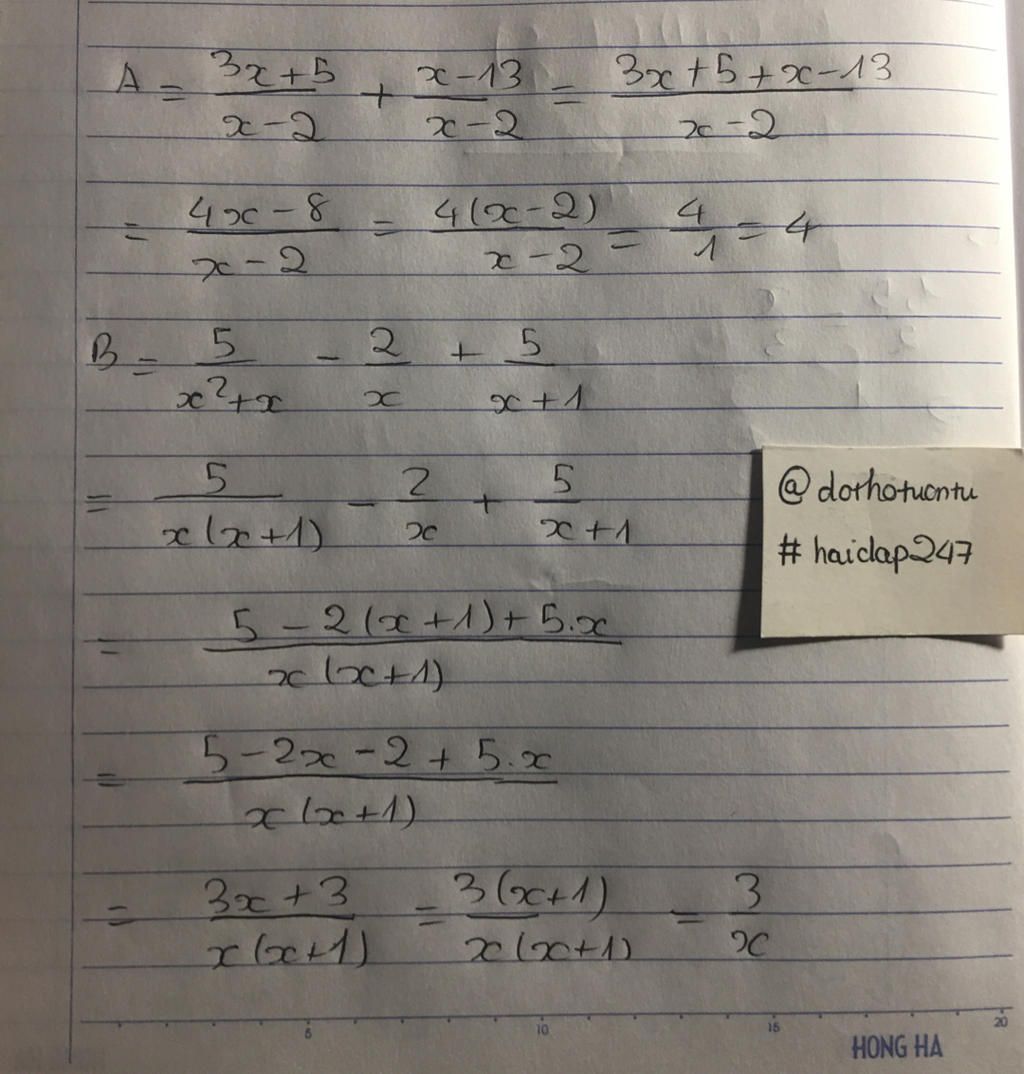 A = (3x+5)/(x-2) + (x-13)/(x-2) = (3x+5+x-13)/(x-2)
= (4x-8)/(x-2) = 4(x-2)/(x-2) = 4/1 = 4
B = 5/(x²+x) - 2/x + 5/(x+1)
= 5/(x(x+1)) - 2/x + 5/(x+1)
@dorhotuontu
#haidap247
= (5-2(x+1)+5.x)/(x(x+1))
= (5-2x-2+5.x)/(x(x+1))
= (3x+3)/(x(x+1)) = 3(x+1)/(x(x+1)) = 3/x
5 10 15 20
HONG HA